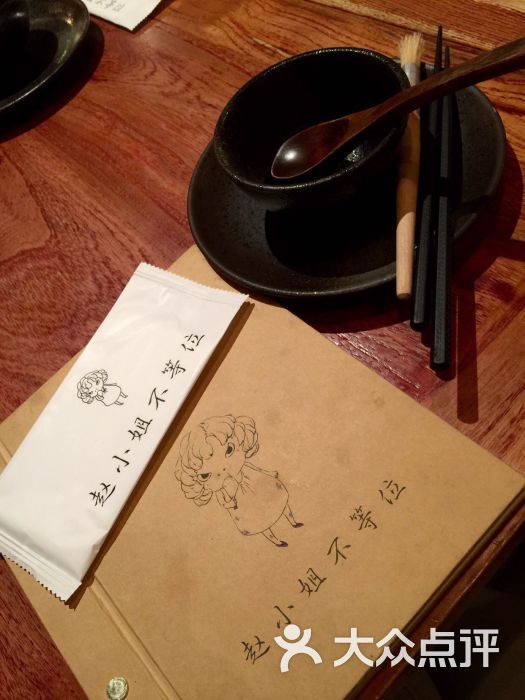 赵小姐不等位
赵小姐不等位
大众点评